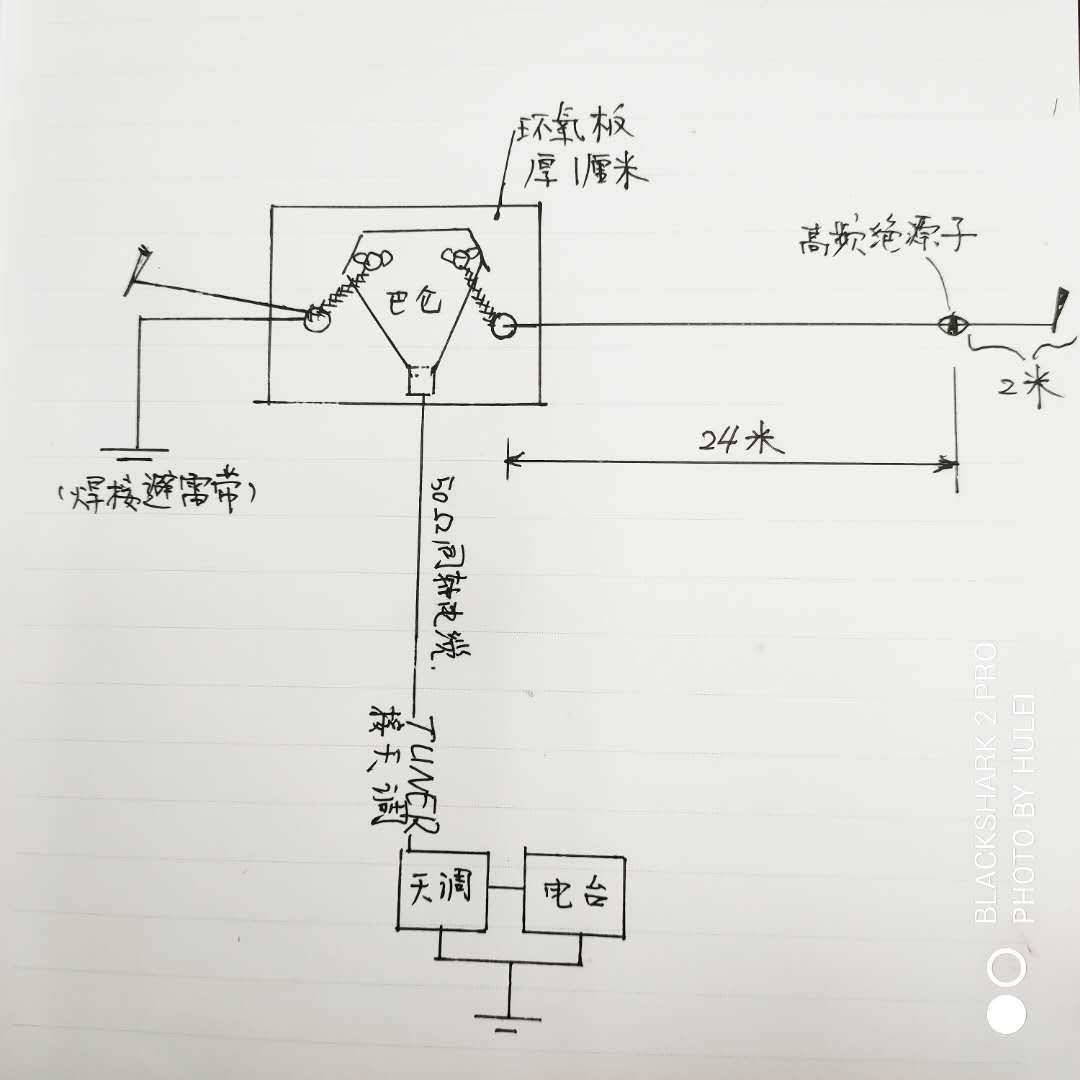 环氧板
厚1厘米
高频绝源子
巴仑
2米
24米
(焊接避雷带)
50Ω同轴电缆.
TUNER
接天调
天调
电台
BLACKSHARK 2 PRO
PHOTO BY HULEI